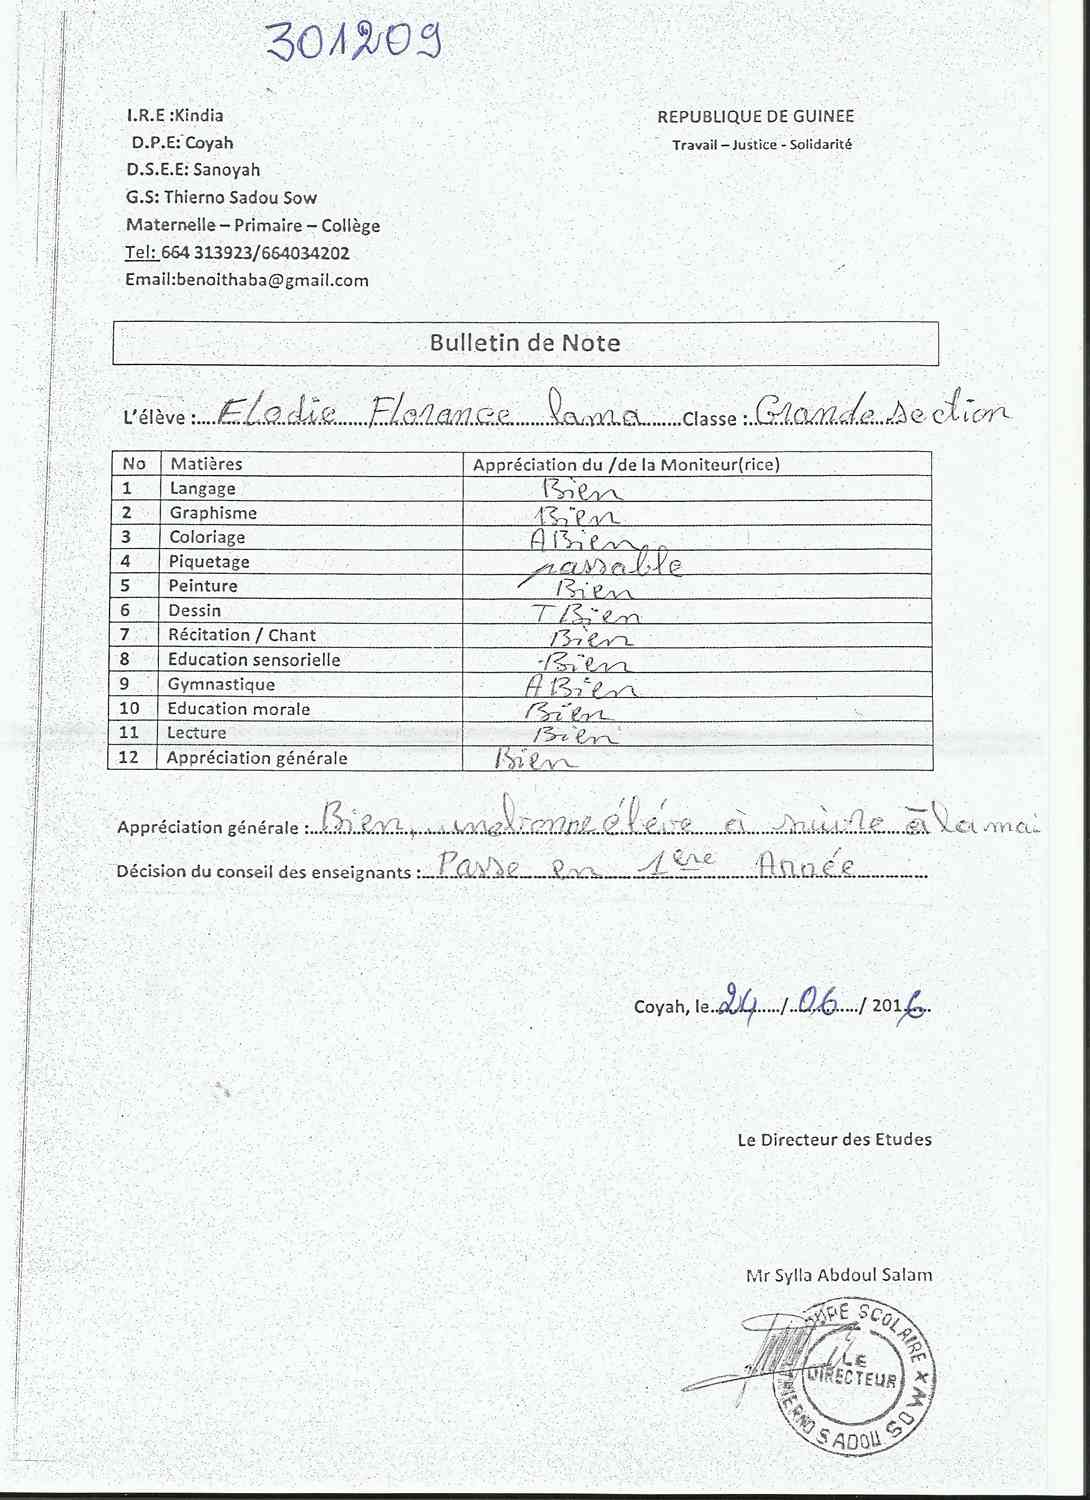 301209
I.R.E :Kindia
REPUBLIQUE DE GUINEE
D.P.E: Coyah
Travail – Justice - Solidarité
D.S.E.E: Sanoyah
G.S: Thierno Sadou Sow
Maternelle – Primaire – Collège
Tel: 664 313923/664034202
Email:benoithaba@gmail.com
Bulletin de Note
L'élève : Elodie Florance lama Classe : Grande section
No Matières Appréciation du /de la Moniteur(rice)
1 Langage Bien
2 Graphisme Bien
3 Coloriage ABien
4 Piquetage passable
5 Peinture Bien
6 Dessin TBien
7 Récitation / Chant Bien
8 Education sensorielle Bien
9 Gymnastique ABien
10 Education morale Bien
11 Lecture Bien
12 Appréciation générale Bien
Appréciation générale : Bien, une bonne élève à suivre à la mai
Décision du conseil des enseignants : Passe en 1ère Année
Coyah, le 24 / 06 / 2016
Le Directeur des Etudes
Mr Sylla Abdoul Salam
OUPE SCOLAIRE X THIERNO SADOU SOW
LE
DIRECTEUR